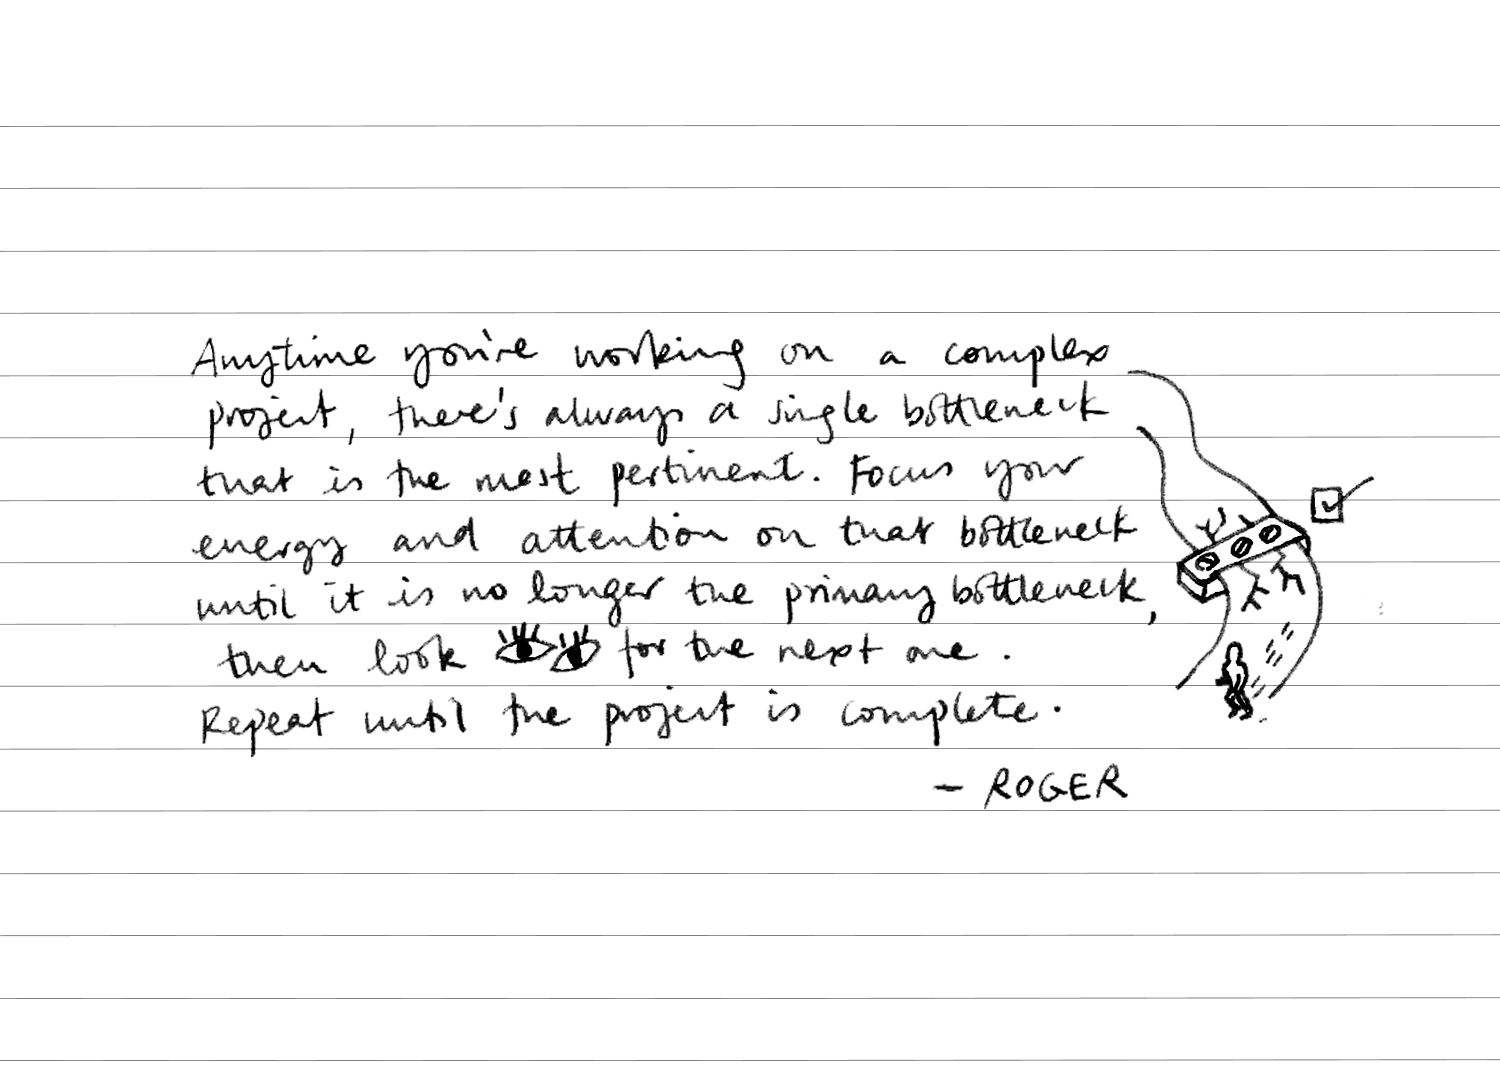 Anytime you're working on a complex
project, there's always a single bottleneck
that is the most pertinent. Focus your
energy and attention on that bottleneck
until it is no longer the primary bottleneck,
then look for the next one.
Repeat until the project is complete.
- ROGER